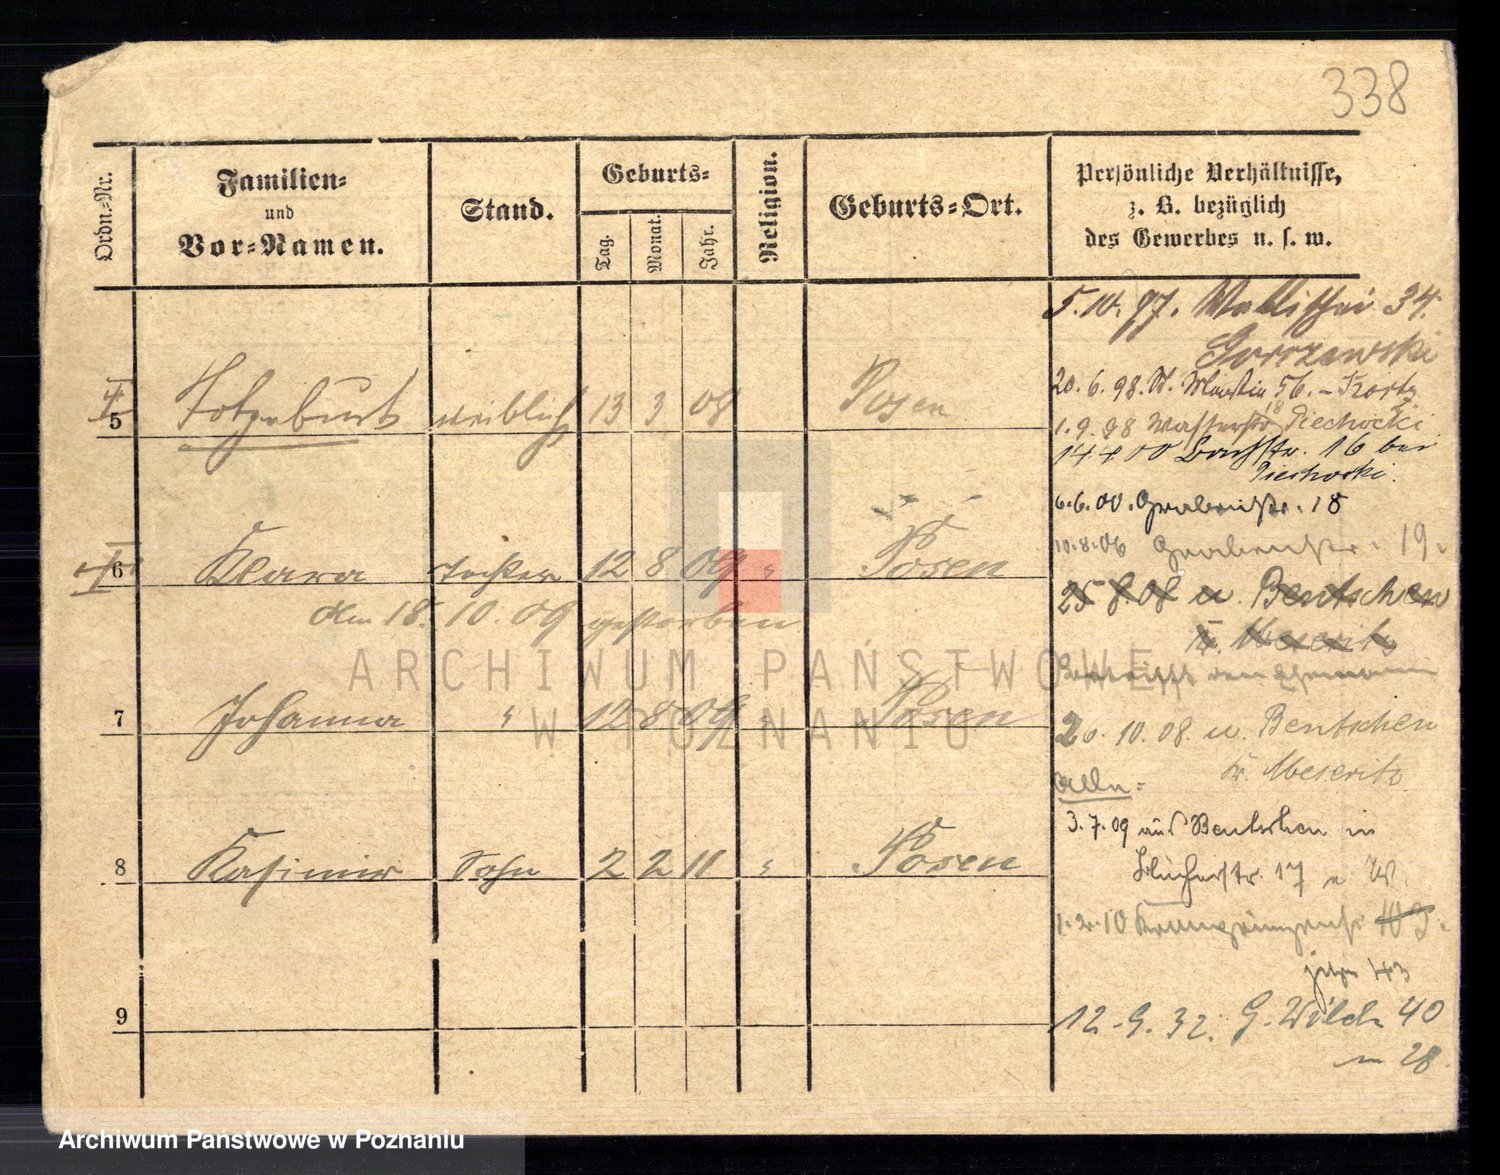 338
Ordn.-Nr.
Familien-
und
Vor-Namen.
Stand.
Geburts-
Tag.
Monat.
Jahr.
Religion.
Geburts-Ort.
Persönliche Verhältnisse,
z. B. bezüglich
des Gewerbes u. s. w.
5.10.97. Wallischei 34.
Gorczewski
20.6.98. St. Martin 56. -
5 Totgeburt weiblich 13 3 08 Posen
1.9.98 Wasserstr 18 Piechocki
14.4.00 Bachstr. 16 bei
Piechocki.
6.6.00. Grabenstr. 18
10.8.06 Grabenstr. 19.
6 Klara Tochter 12 8 09 " Posen
25 8.08 u. Bentschen
Kr. Meseritz
den 18. 10. 09 gestorben
betrifft den Ehemann
7 Johanna " 12 8 09 " Posen
26. 10. 08. u. Bentschen
Kr. Meseritz
Alle:
3.7.09 aus Bentschen in
Blücherstr. 17
8 Kasimir Sohn 2 2 11 " Posen
1.2.10 Kronprinzenstr
jetzt 43
9
12.9.32. G. Wilda 40
28.
ARCHIWUM PAŃSTWOWE
W POZNANIU
Archiwum Państwowe w Poznaniu